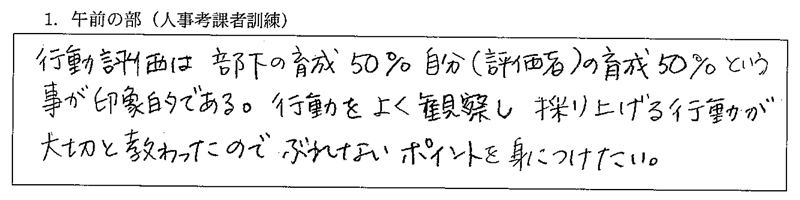 1. 午前の部（人事考課者訓練）
行動評価は 部下の育成 50% 自分（評価者）の育成50%という
事が印象的である。行動をよく観察し 採り上げる行動が
大切と教わったので ぶれない ポイントを身につけたい。